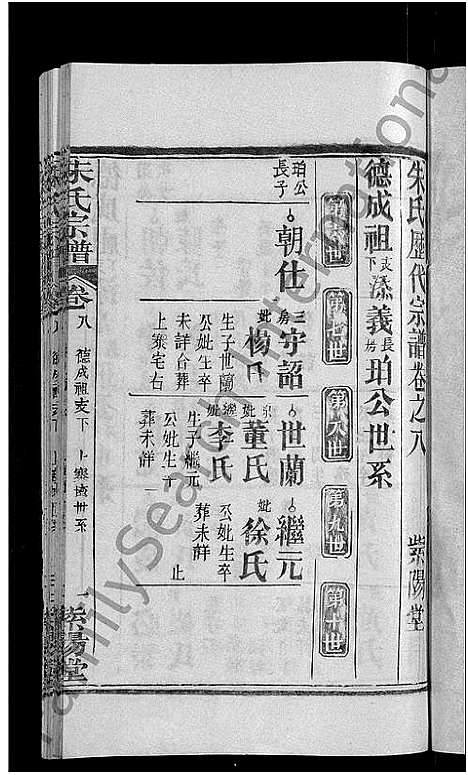 朱氏歷代宗譜卷之八 紫陽堂
德成祖支下添義長房珀公世系
第六世 第七世 第八世 第九世 第十世
珀公長子
朝仕
三房 守詔
妣 楊氏
生子世蘭
公妣生卒
未詳合葬
上寨宅右
世蘭
妣 董氏
妣 李氏
生子繼元
公妣生卒
葬未詳
繼元
妣 徐氏
公妣生卒
葬未詳
止
朱氏宗譜 卷八 德成祖支下 上寨珀世系 一 紫陽堂
FamilySearch International